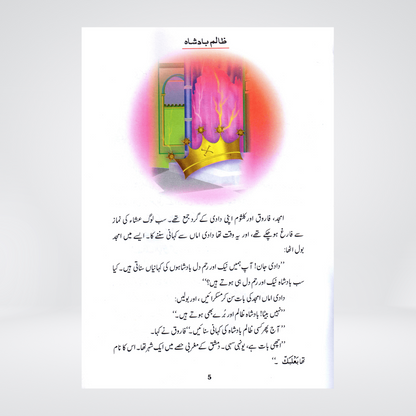 ظالم بادشاہ
امجد، فاروق اور کلثوم اپنی دادی کے گرد جمع تھے۔ سب لوگ عشاء کی نماز
سے فارغ ہو چکے تھے، اور یہ وقت تھا دادی اماں سے کہانی سننے کا۔ ایسے میں امجد
بول اٹھا:
”دادی جان! آپ ہمیں نیک اور رحم دل بادشاہوں کی کہانیاں سناتی ہیں۔ کیا
سب بادشاہ نیک اور رحم دل ہی ہوتے ہیں؟“
دادی اماں امجد کی بات سن کر مسکرائیں، اور بولیں:
”نہیں بیٹا! بادشاہ ظالم اور بُرے بھی ہوتے ہیں۔“
”آج پھر کسی ظالم بادشاہ کی کہانی سنائیں۔“ فاروق نے کہا۔
”اچھی بات ہے، یونہی سہی۔ دمشق کے مغربی حصے میں ایک شہر تھا۔ اس کا نام
تھا بَعْلَبَکّ ۔“
5